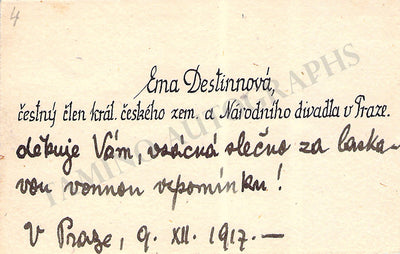 4
Ema Destinnová,
čestný člen král. českého zem. a Národního divadla v Praze.
děkuje Vám, vzácná slečno za laska-
vou vonnou vzpomínku!
V Praze, 9. XII. 1917.—
TAMINO AUTOGRAPHS